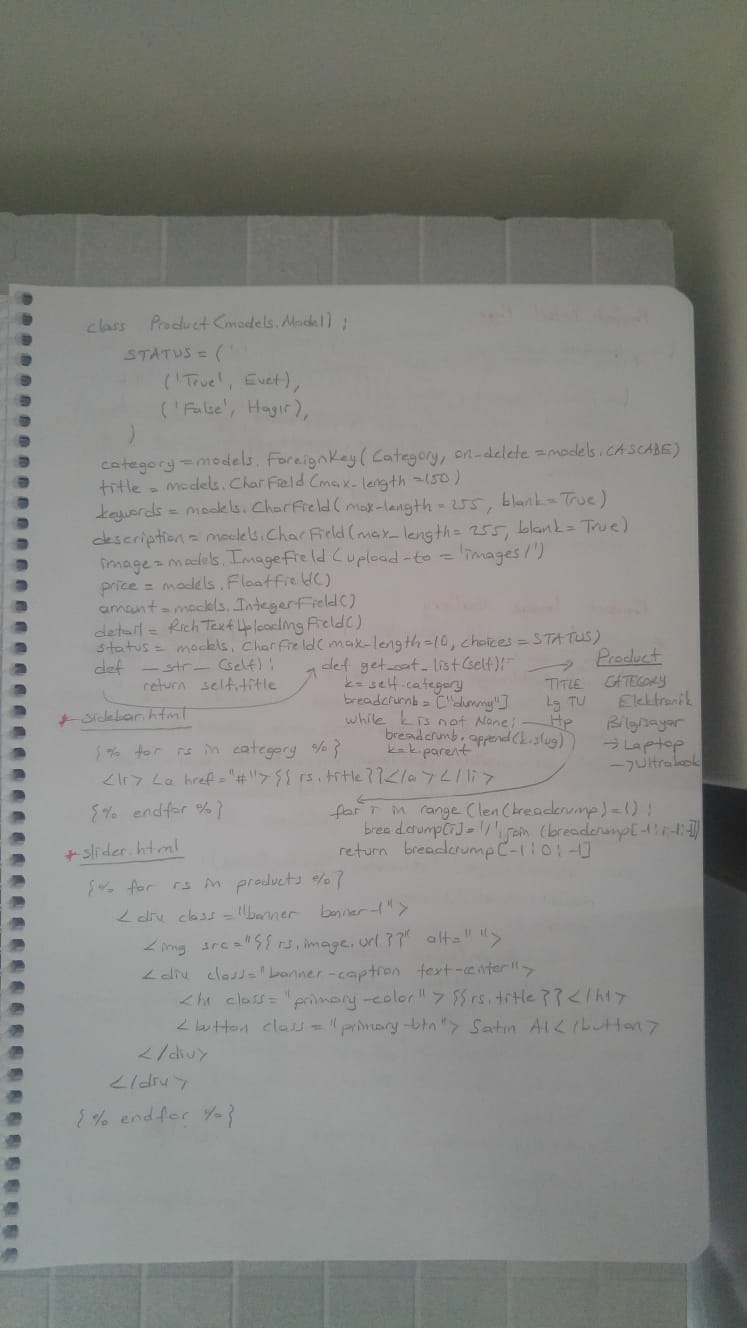 class Product(models.Model):
STATUS = (
('True', Evet),
('False', Hayır),
)
category = models.ForeignKey(Category, on-delete = models.CASCADE)
title = models.CharField(max-length = 150)
keywords = models.CharField(max-length = 255, blank = True)
description = models.CharField(max_length = 255, blank = True)
image = models.ImageField(upload-to = 'images/')
price = models.FloatField()
amount = models.IntegerField()
detail = RichTextUploadingField()
status = models.CharField(max-length = 10, choices = STATUS)
def __str__(self):
return self.title
def get_cat_list(self):
k = self.category
breadcrumb = ["dummy"]
while k is not None:
breadcrumb.append(k.slug)
k = k.parent
for i in range (len(breadcrump) = 1) :
breadcrump[i] = '/'.join (breadcrump[-1:i-1:-1])
return breadcrump[-1:0:-1]
Product
TITLE CATEGORY
Lg TV Elektronik
Hp Bilgisayar
→ Laptop
→ Ultrabook
* sidebar.html
{% for rs in category %}
<li> <a href = "#"> {{ rs.title }}</a> </li>
{% endfor %}
* slider.html
{% for rs in products %}
<div class = "banner banner-1">
<img src = "{{ rs.image.url }}" alt = " ">
<div class = "banner-caption text-center">
<h1 class = "primary-color" > {{rs.title }} </h1>
<button class = "primary-btn"> Satın Al </button>
</div>
</div>
{% endfor %}